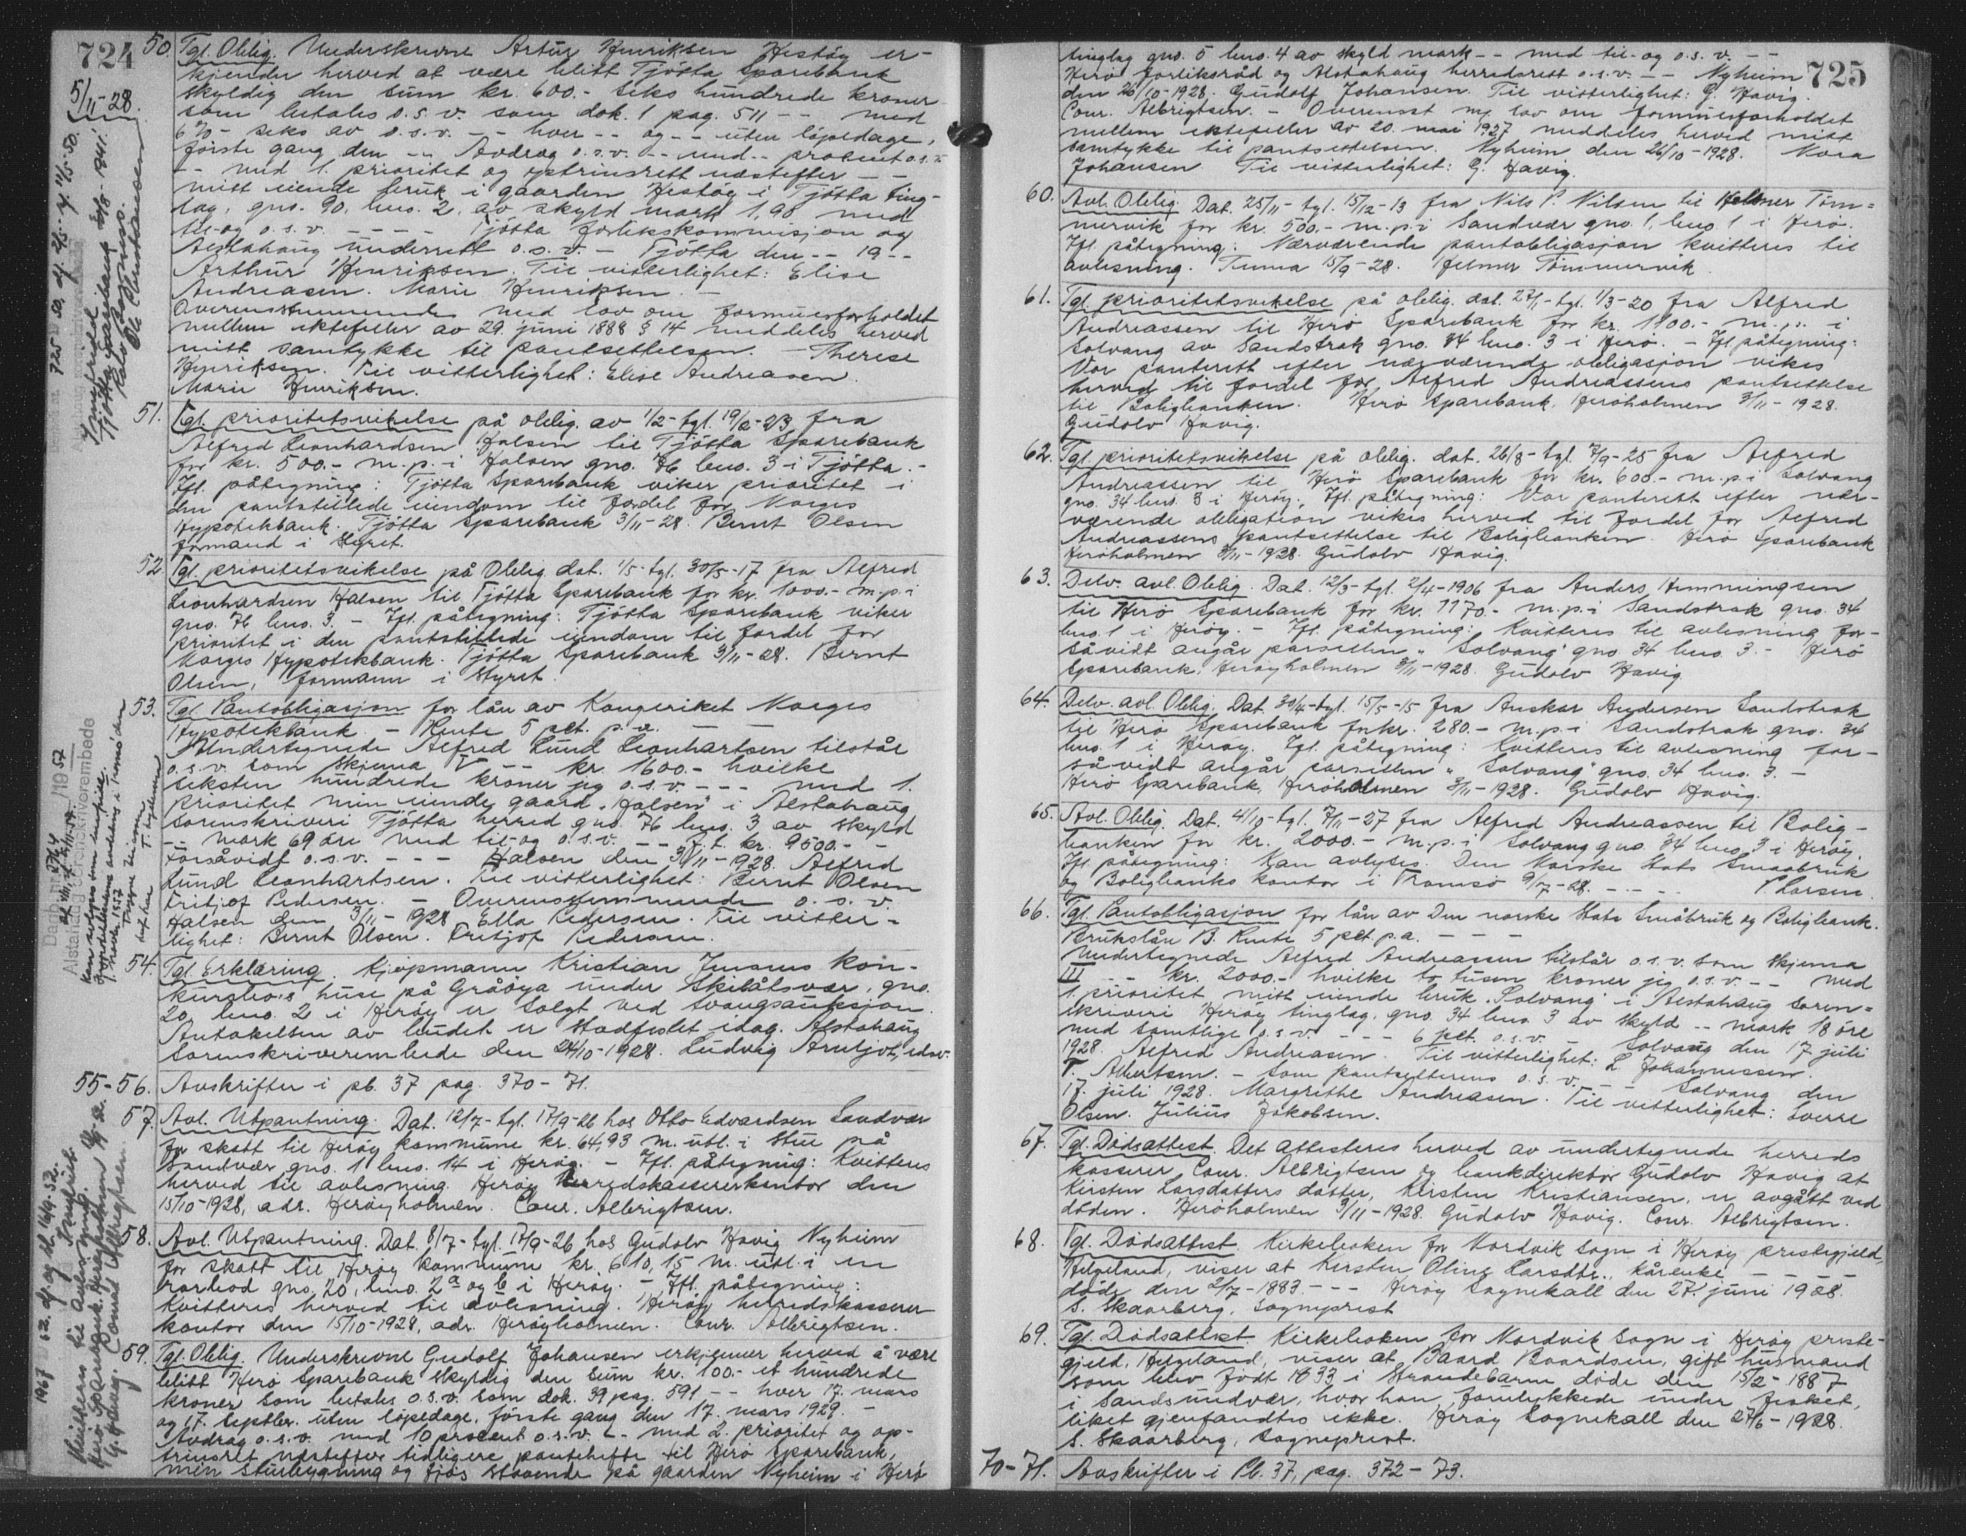 724
5/11-28.
50. Tgl. Oblig. Underskrevne Artur Henriksen Hestøy er-
kjender herved at være blitt Tjøtta Sparebank
skyldig den sum kr. 600.- seks hundrede kroner
som betales o.s.v. som dok. 1 pag. 511 -- med
6 % - seks av o.s.v. -- hver -- og -- uten løpedage,
første gang den -- Avdrag o.s.v. -- med -- procent o.s.v.
-- med 1. prioritet og optrinsrett næstefter --
mitt eiende bruk i gaarden Hestøy i Tjøtta ting-
lag, gno. 90, bno. 2, av skyld mark 1,90 med
til-og o.s.v. ---- Tjøtta forlikskommisjon og
Alstahaug underrett o.s.v. - Tjøtta den -- 19--
Arthur Henriksen. Til vitterlighet: Elise
Andreasen. Marie Henriksen. -
Overensstemmende med lov om formuesforholdet
mellem ektefeller av 29. juni 1888 § 14 meddeles herved
mitt samtykke til pantsettelsen. - Therese
Henriksen. Til vitterlighet: Elise Andreasen.
Marie Henriksen.
51. Tgl. prioritetsvikelse på oblig. av 1/2-tgl. 19/2-23 fra
Alfred Leonhardsen Halsen til Tjøtta Sparebank
for kr. 500.- m.p.i Halsen gno. 76 bno. 3 i Tjøtta. -
Ifl. påtegning: Tjøtta Sparebank viker prioritet i
den pantstillede eiendom til fordel for Norges
Hypotekbank. Tjøtta Sparebank 3/11-28. Bernt Olsen
formand i styret.
52. Tgl. prioritetsvikelse på Oblig. dat. 1/5-tgl. 30/5-17 fra Alfred
Leonhardsen Halsen til Tjøtta Sparebank for kr. 1000.- m.p.i
gno. 76 bno. 3. - Ifl. påtegning: Tjøtta Sparebank viker
prioritet i den pantstillede eiendom til fordel for
Norges Hypotekbank. Tjøtta Sparebank 3/11-28. Bernt
Olsen, formann i styret.
53. Tgl. Pantobligasjon for lån av Kongeriket Norges
Hypotekbank - Rente 5 pct. p.a.
Undertegnede Alfred Lund Leonhartsen tilstår
o.s.v. som skjema V -- kr 1600.- hvilke
seksten hundrede kroner jeg o.s.v. --- med 1.
prioritet min eiende gaard "Halsen" i Alstahaug
sorenskriveri Tjøtta herred gno 76 bno. 3 av skyld
-- mark 69 øre med til-og o.s.v. --- f.t. kr. 9500.- -
Forsåvidt o.s.v. --- Halsen den 3/11-1928. Alfred
Lund Leonhartsen. Til vitterlighet: Bernt Olsen
Fritjof Pedersen. - Overensstemmende o.s.v.
Halsen den 3/11-1928 Ella Pedersen. Til vitter-
lighet: Bernt Olsen. Fritjof Pedersen.
54. Tgl. Erklæring. Kjøpmann Kristian Jensens kon-
kursbo's huse på Gråøya under Skibåtsvær, gno.
20, bno. 2 i Herøy er solgt ved tvangsauksjon.
Antakelsen av budet er stadfestet idag. Alstahaug
Sorenskriverembede den 24/10-1928. Ludvig Arntjot, edsv.
55-56. Avskrifter i pb. 37 pag. 370-71.
57. Avl. Utpantning. Dat. 12/7-tgl. 17/9-26 hos Otto Edvardsen Sandvær
for skatt til Herøy kommune kr. 64,93 m.utl. i stue på
Sandvær gno. 1 bno. 14 i Herøy. - Ifl. påtegning: Kvitteres
herved til avlesning. Herøy herredskassererkontor den
15/10-1928, adr. Herøyholmen. Conr. Albrigtsen.
58. Avl. Utpantning. Dat. 8/7-tgl. 17/9-26 hos Gudolv Havig Nyheim
for skatt til Herøy kommune kr. 610,15 m.utl. i en
rorbod gno. 20, bno. 2a og b i Herøy. - Ifl. påtegning:
Kvitteres herved til avlesning. Herøy herredskasserer
kontor den 15/10-1928, adr. Herøyholmen. Conr. Albrigtsen.
59. Tgl. Oblig. Underskrevne Gudolf Johansen erkjenner herved å være
blitt Herø Sparebank skyldig den sum kr. 100.- et hundrede
kroner som betales o.s.v. som dok. 39 pag. 591 -- hver 17. mars
og 17. septbr. uten løpedage, første gang den 17. mars 1929. -
Avdrag o.s.v. med 10 procent o.s.v. -- med 2. prioritet og op-
trinsret næstefter tidligere pantehefte til Herø Sparebank,
min stuebygning og fjøs staaende på gaarden Nyheim i Herø
725
tinglag gno. 5 bno. 4 av skyld mark -- med til-og o.s.v. --
Herø forliksråd og Alstahaug herredsrett o.s.v. -- Nyheim
den 26/10-1928. Gudolf Johansen. Til vitterlighet: G. Havig.
Conr. Albrigtsen. - Overensst. m/ lov om formuesforholdet
mellem ektefeller av 20. mai 1927 meddeles herved mitt
samtykke til pantsettelsen. Nyheim den 26/10-1928. Nora
Johansen Til vitterlighet: G. Havig.
60. Avl. Oblig. Dat. 25/11-tgl. 15/12-13 fra Nils P. Nilsen til Helmer Tøm-
mervik for kr. 500.- m.p.i Sandvær gno. 1, bno 1 i Herø.
Ifl. påtegning: Nærværende pantobligasjon kvitteres til
avlesning. Tenna 15/9-28. Helmer Tømmervik.
61. Tgl. prioritetsvikelse på oblig. dat. 27/1-tgl. 1/3-20 fra Alfred
Andreassen til Herø Sparebank for kr. 1100.- m.p. i
Solvang av Sandstrak gno. 34 bno. 3 i Herø. - Ifl. påtegning:
Vor panterett efter nærværende obligasjon vikes
herved til fordel for Alfred Andreassens pantsettelse
til Boligbanken. Herø Sparebank, Herøholmen 3/11-1928.
Gudolv Havig.
62. Tgl. prioritetsvikelse på oblig. dat. 26/8-tgl. 7/9-25 fra Alfred
Andreassen til Herø Sparebank for kr. 600.- m.p.i Solvang
gno. 34 bno. 3 i Herøy. Ifl. påtegning: Vor panterett efter nær-
værende obligation vikes herved til fordel for Alfred
Andreassens pantsettelse til Boligbanken. Herø Sparebank
Herøholmen 3/11-1928. Gudolv Havig.
63. Delv. avl. Oblig. Dat. 12/3-tgl. 2/4-1906 fra Anders Hemmingsen
til Herø Sparebank for kr. 1170.- m.p.i Sandstrak gno. 34
bno. 1 i Herøy. - Ifl. påtegning: Kvitteres til avlesning for-
såvidt angår parsellen "Solvang" gno. 34 bno. 3. - Herø
Sparebank, Herøyholmen 3/11-1928. Gudolv Havig
64. Delv. avl. Oblig. Dat. 30/4-tgl. 15/5-15 fra Anskar Andersen Sandstrak
til Herø Sparebank for kr. 280.- m.p.i Sandstrak gno. 34
bno. 1 i Herøy. Ifl. påtegning: Kvitteres til avlesning for-
såvidt angår parsellen "Solvang" gno. 34 bno. 3. -
Herø Sparebank, Herøholmen 3/11-1928. Gudolv Havig.
65. Avl. Oblig. Dat. 4/10-tgl. 7/11-27 fra Alfred Andreassen til Bolig-
banken for kr. 2000.- m.p.i Solvang gno. 34 bno. 3 i Herøy.
Ifl. påtegning: Kan avlyses. Den Norske Stats Småbruk
og Boligbanks kontor i Tromsø 9/7-28. ---- P. Larsen.
66. Tgl. Pantobligasjon for lån av Den norske Stats Småbruk og Boligbank.
Brukslån B. Rente 5 pct p.a. ----
Undertegnede Alfred Andreassen tilstår o.s.v. som skjema
III -- kr. 2000.- hvilke to tusen kroner jeg o.s.v. -- med
1. prioritet mitt eiende bruk "Solvang" i Alstahaug soren-
skriveri Herøy tinglag, gno. 34 bno. 3 av skyld -- mark 18 øre
med samtlige o.s.v. --- 6 pct. o.s.v. - Solvang den 17 juli
1928. Alfred Andreasen. Til vitterlighet: L. Johannessen.
T. Albertsen. - Som pantsetterens o.s.v. -- Solvang den
17. juli 1928. Margrethe Andreasen. Til vitterlighet: Sverre
Olsen. Julius Jakobsen.
67. Tgl. Dødsattest. Det attesteres herved av undertegnede herreds
kasserer Conr. Albrigtsen og bankdirektør Gudolv Havig at
Kirsten Larsdatters datter, Kirsten Kristiansen, er avgått ved
døden. Herøholmen 3/11-1928. Gudolv Havig. Conr. Albrigtsen.
68. Tgl. Dødsattest. Kirkeboken for Nordvik sogn i Herøy prestegjeld,
Helgeland, viser at Kersten Oline Larsdtr., kårenke --
døde den 2/7-1883. --- Herøy Sognekall den 27. juni 1928.
S. Skaarberg, sogneprest
69. Tgl. Dødsattest Kirkeboken for Nordvik sogn i Herøy preste-
gjeld, Helgeland, viser at Baard Baardsen, gift husmand
som blev født 1833 i Strandebarm døde den 15/2-1887
i Sandsundvær, hvor han forulykkede under fisket,
liket gjenfandtes ikke. Herøy Sognekall den 27/6-1928.
S. Skaarberg, sogneprest.
70-71. Avskrifter i Pb. 37, pag. 372-73.